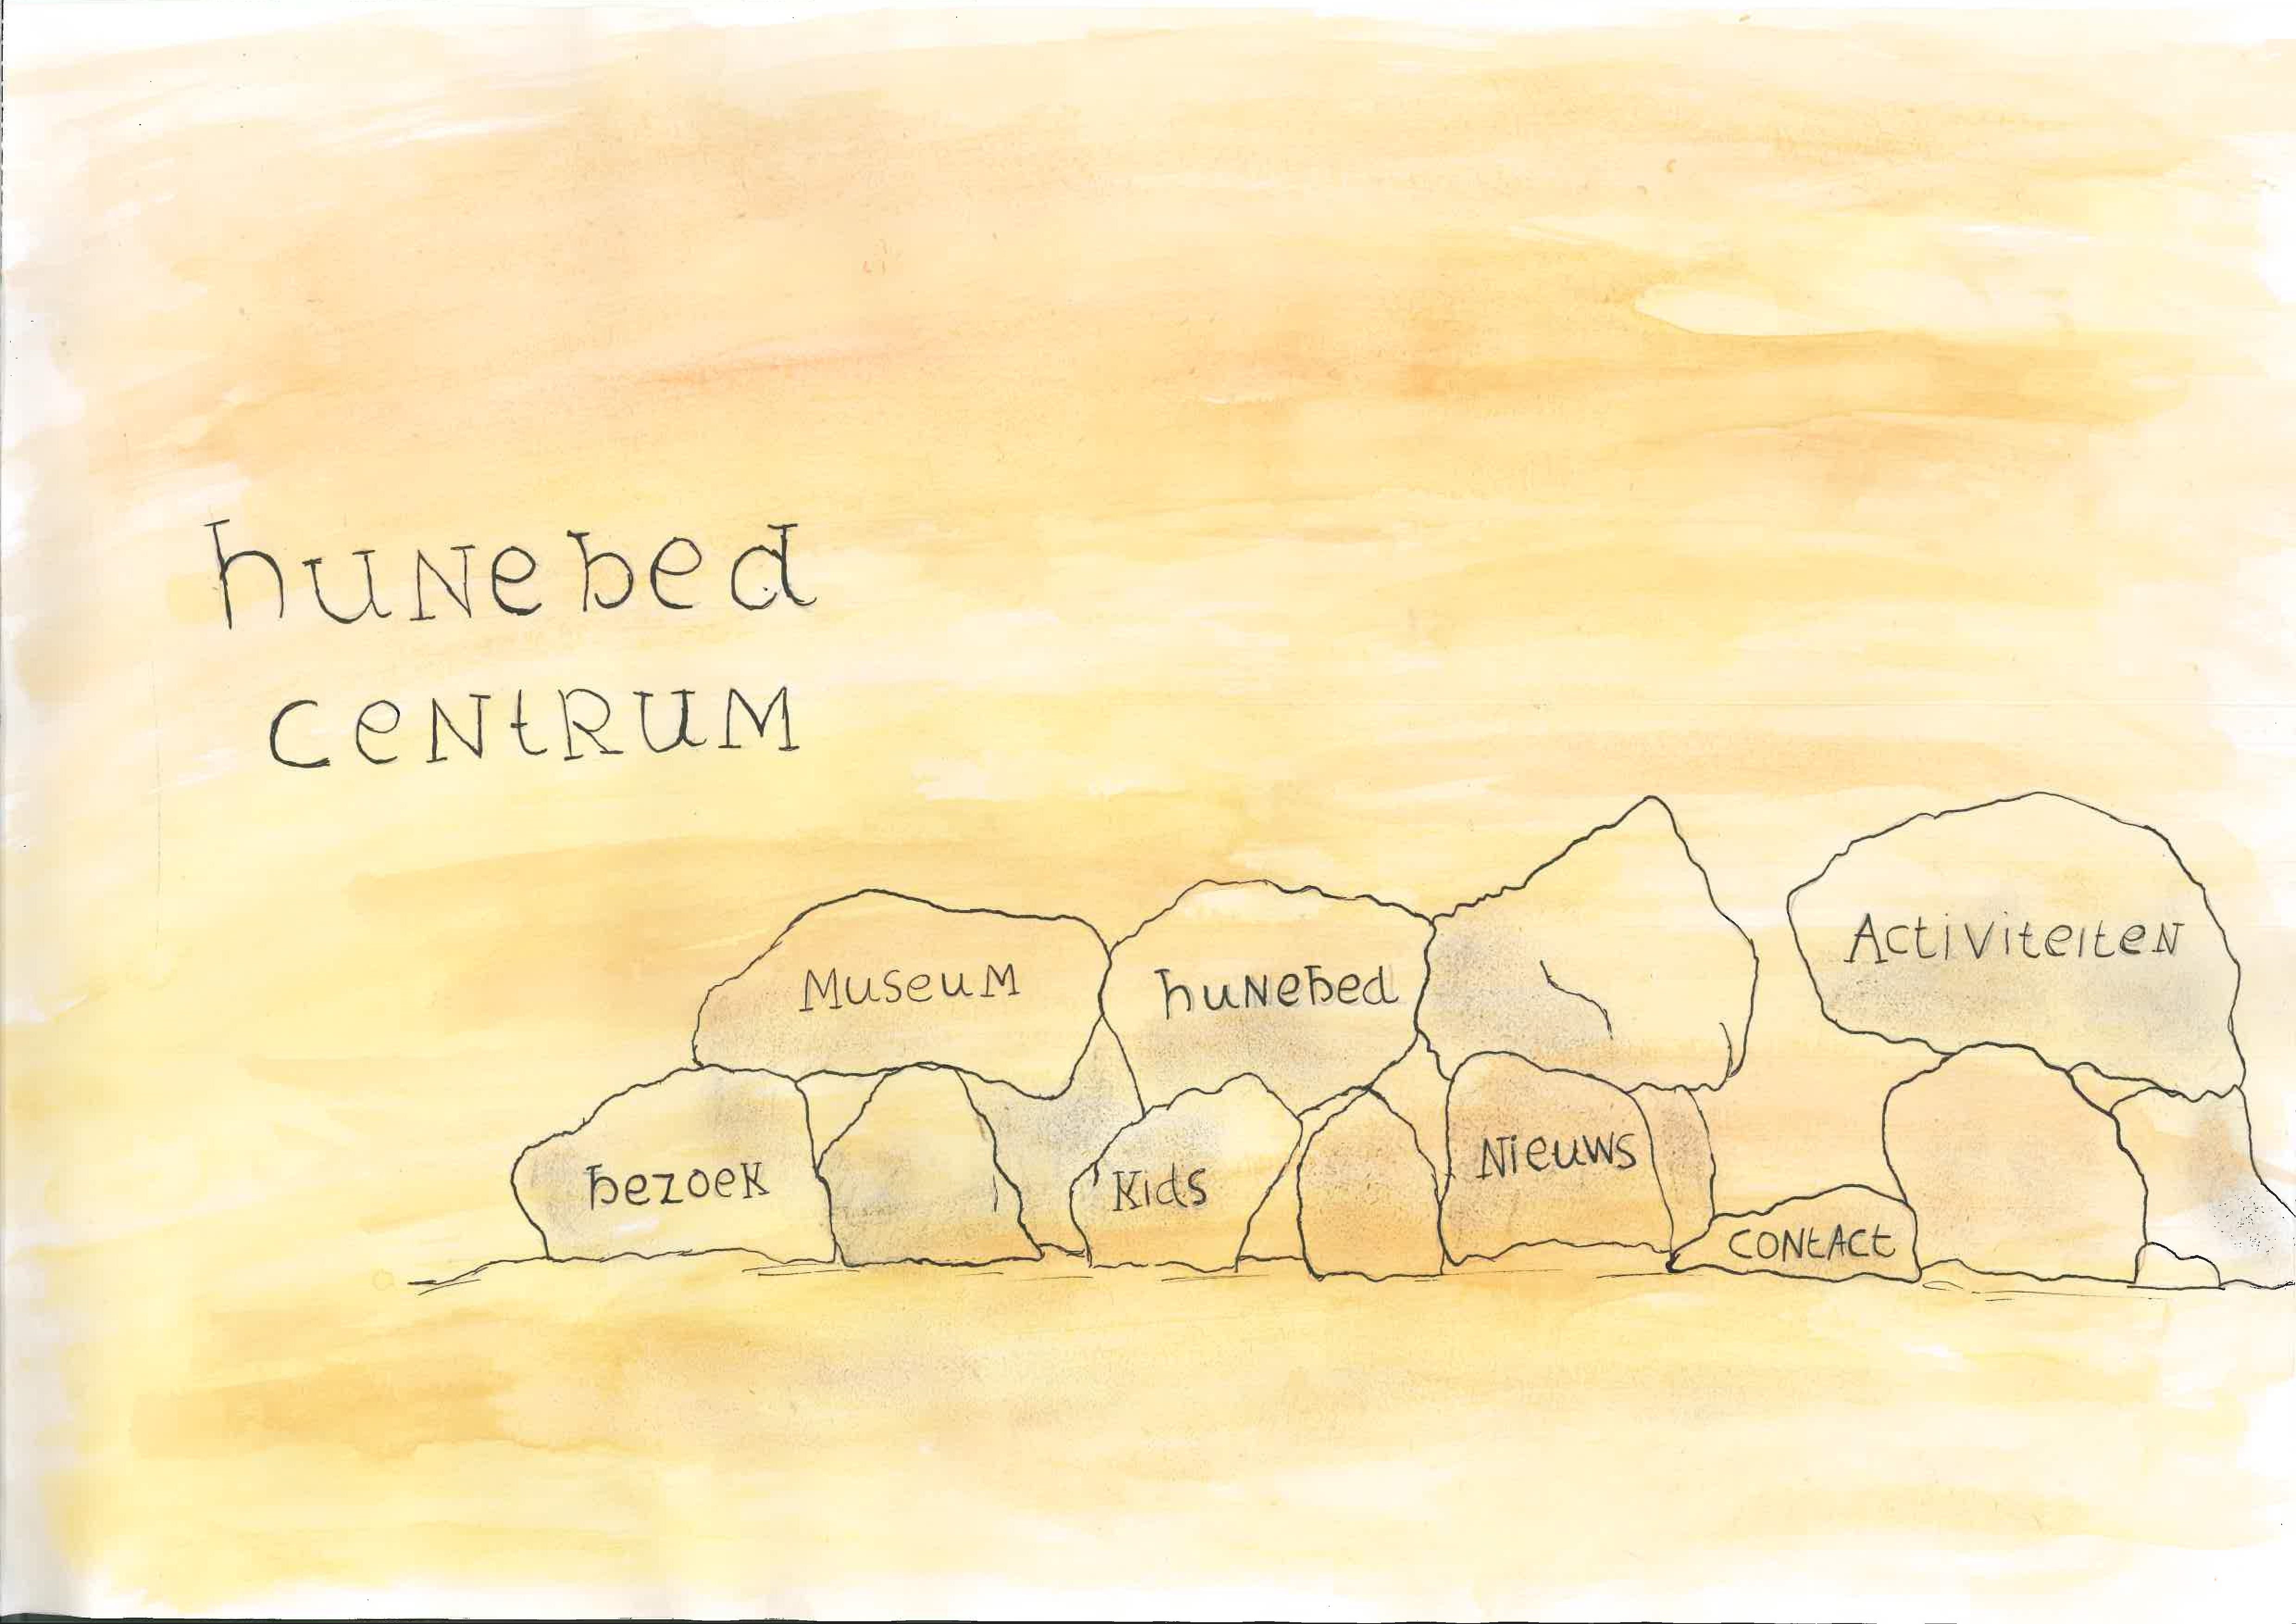 huNebed
ceNtRUM
MuseuM
huNebed
ActiviteiteN
bezoek
Kids
Nieuws
CONtAct